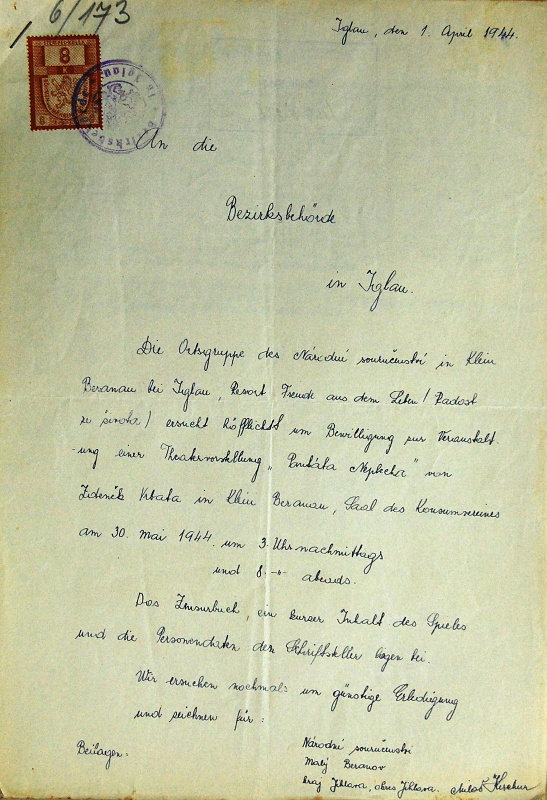 6/173
Iglau, den 1. April 1944.
8
K
An die
Bezirksbehörde
in Iglau.
Die Ortsgruppe des Národní souručenství in Klein
Beranau bei Iglau, Resort Freude aus dem Leben / Radost
ze života / ersucht höfflichst um Bewilligung zur Veranstalt-
ung einer Theatervorstellung „ Neplecha " von
Zdeněk Vrbata in Klein Beranau, Saal des Konsumvereines
am 30. Mai 1944 um 3 Uhr nachmittags
und 8.-"- abends.
Das Zensurbuch, ein kurzer Inhalt des Spieles
und die Personendaten den Schriftsteller liegen bei.
Wir ersuchen nochmals um günstige Erledigung
und zeichnen für :
Beilagen:
Národní souručenství
Malý Beranov
kraj Jihlava, okres Jihlava.